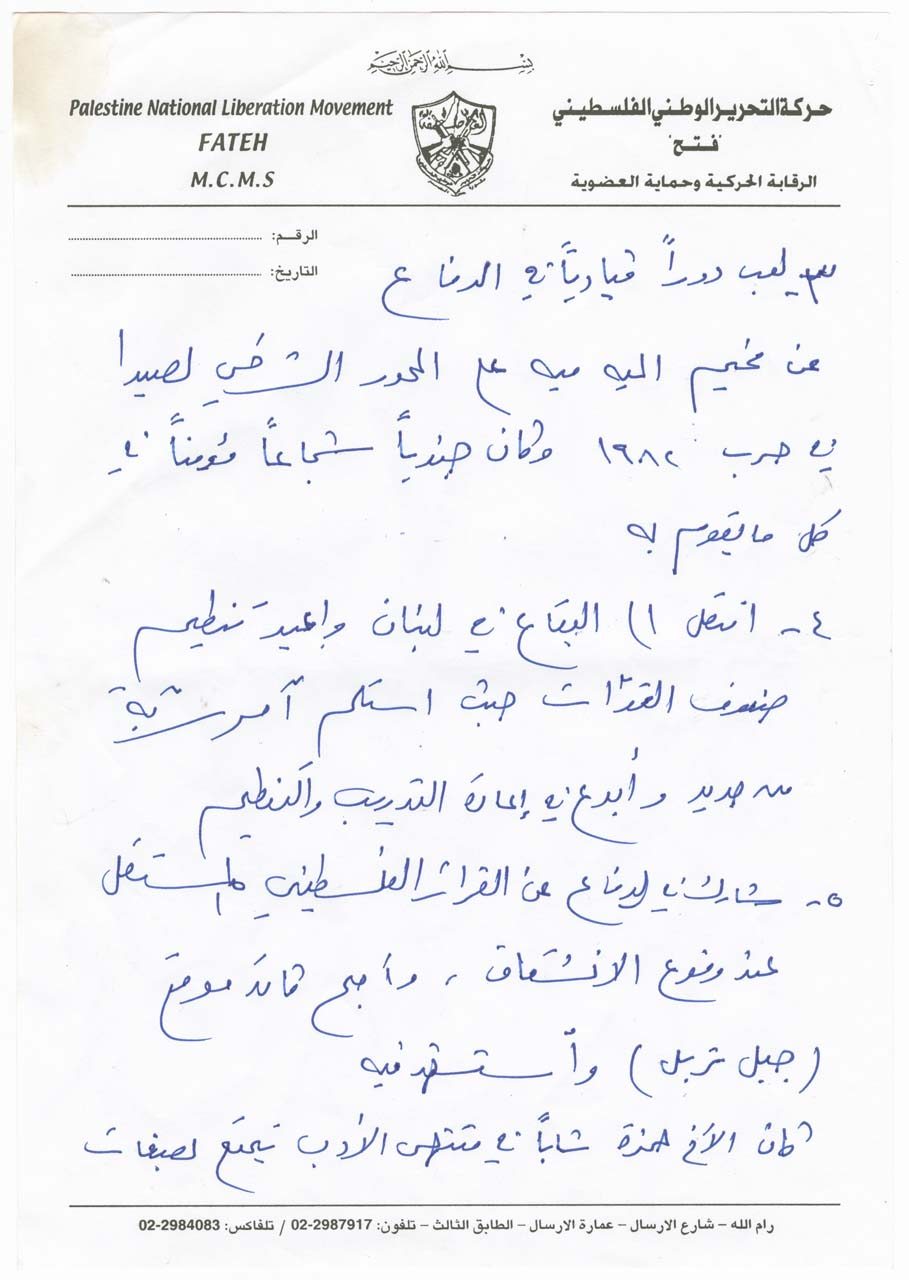 بسم الله الرحمن الرحيم
Palestine National Liberation Movement
FATEH
M.C.M.S
حركة التحرير الوطني الفلسطيني
"فتح"
الرقابة الحركية وحماية العضوية
الرقم:
التاريخ:
٣- لعب دوراً قيادياً في الدفاع
عن مخيم الميه ميه على المحور الشرقي لصيدا
في حرب ١٩٨٢ وكان جندياً شجاعاً مؤمناً في
كل ما يقوم به
٤- انتقل الى البقاع في لبنان وأعيد تنظيم
صفوف القوات حيث استلم آمر سرية
من جديد وأبدع في إعادة التدريب والتنظيم
٥- شارك في الدفاع عن القرار الفلسطيني المستقل
عند وقوع الانشقاق، وأصبح قائد موقع
(جبل تربل) وأستشهد فيه
كان الأخ حمزة شاباً في منتهى الأدب يتمتع بصفات
رام الله – شارع الارسال – عمارة الارسال – الطابق الثالث – تلفون: 02-2987917 / تلفاكس: 02-2984083